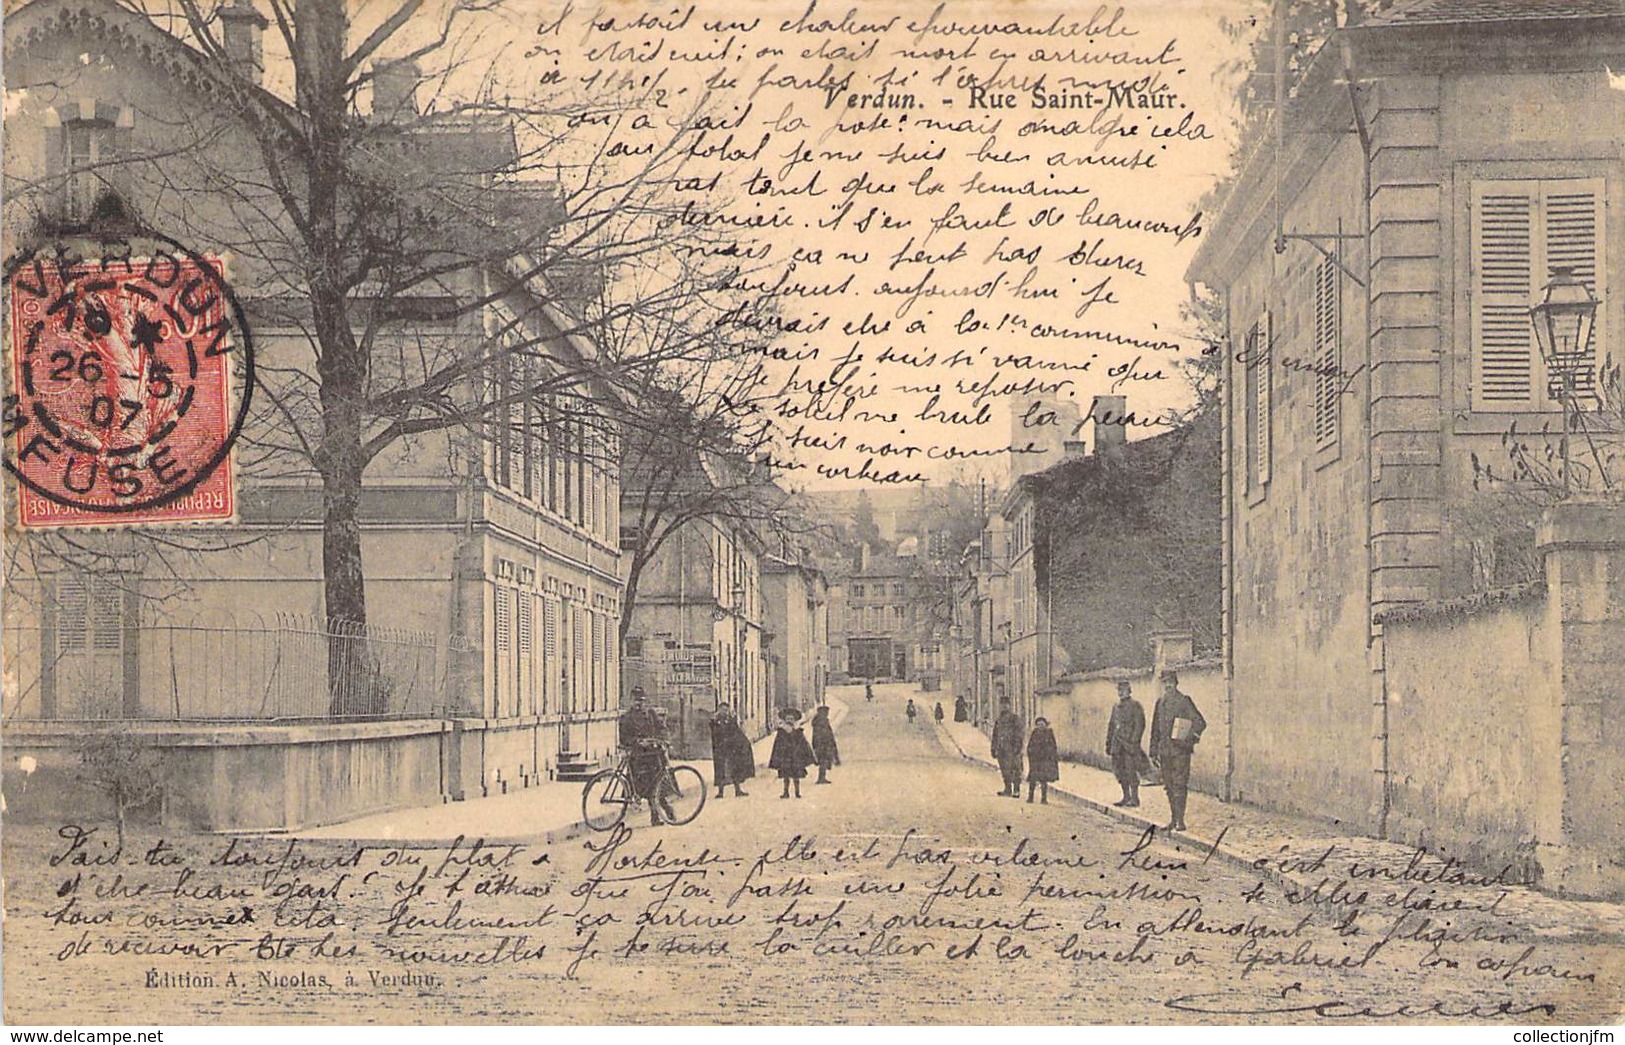 il faisait un chaleur épouvantable
on était cuit ; on était mort en arrivant
à 11h1/2. tu parles si l'après midi
Verdun. - Rue Saint-Maur.
on a fait la pose. mais malgré cela
au total je me suis bien amusé
pas tant que la semaine
dernière. il s'en faut de beaucoup
mais ça ne peut pas durer
toujours. aujourd'hui je
devais être à la 1er communion à Epernay
mais je suis si vanné que
je préfère me reposer.
Le soleil me brule la peau
je suis noir comme
un corbeau
VERDUN
18 *
26 - 5
07
MEUSE
RÉPUBLIQUE FRANÇAISE
Fais-tu toujours du plat à Hortense. elle est pas vilaine hein! c'est embêtant
d'être beau gars! Je t'assure que j'ai passé une folle permission. si elles étaient
tous comme cela. seulement ça arrive trop rarement. En attendant le plaisir
de recevoir de tes nouvelles je te serre la cuiller et la louche à Gabriel. Ton copain
Édition A. Nicolas, à Verdun.
collectionjfm